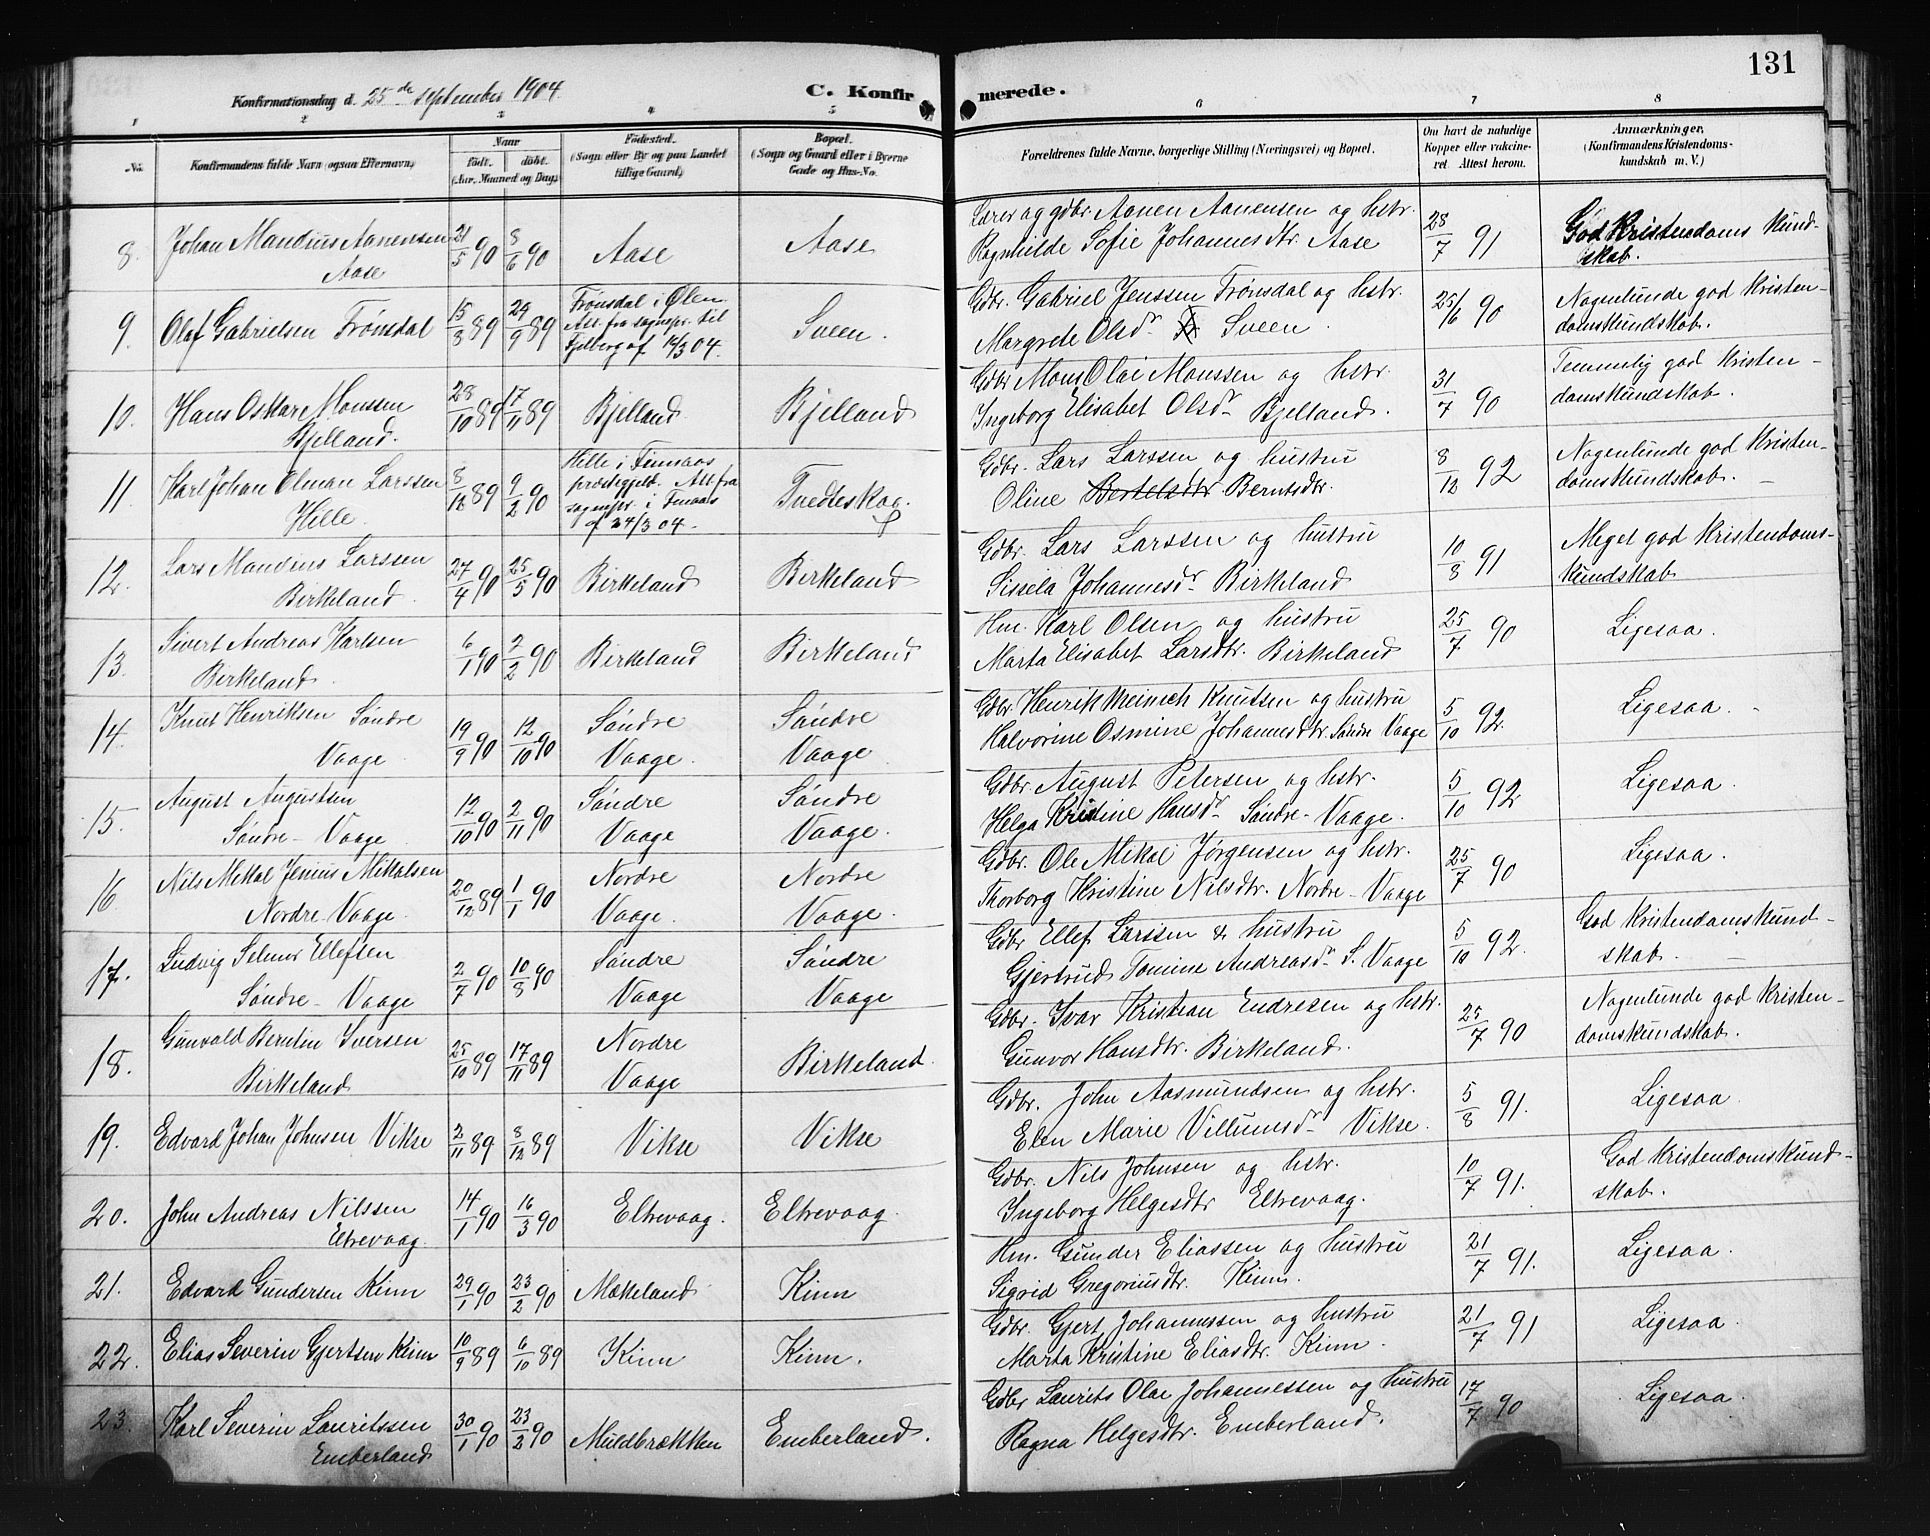 131
Konfirmationsdag d. 25de september 1904.
C. Konfirmerede.
1 2 3 4 5 6 7 8
No.
Konfirmandens fulde Navn (ogsaa Efternavn)
Naar
født. døbt.
(Aar, Maaned og Dag)
Fødested.
(Sogn eller By og paa Landet
tillige Gaard)
Bopæl.
(Sogn og Gaard eller i Byerne
Gade og Hus-No.
Forældrenes fulde Navne, borgerlige Stilling (Næringsvei) og Bopæl.
Om havt de naturlige
Kopper eller vakcine-
ret. Attest herom.
Anmærkninger,
(Konfirmandens Kristendoms-
kundskab m. V.)
8. Johan Mandius Aanensen
Aase
21/5 90 8/6 90 Aase Aase
Lærer og gdbr. Aanen Aanensen og hstr.
Ragnhilde Sofie Johannesdtr. Aase
28/7 91
God Kristendoms kund-
skab.
9. Olaf Gabrielsen Trønsdal
15/8 89 29/9 89
Trønsdal i Ølen.
Att. fra sognepr. til
Fjelberg af 14/3 04.
Sveen.
Gdbr. Gabriel Jenssen Trønsdal og hstr.
Margrete Olsdr Sveen.
25/6 90
Nogenlunde god Kristen-
domskundskab.
10. Hans Oskar Monssen
Bjelland.
28/10 89 17/11 89 Bjelland. Bjelland
Gdbr Mons Olai Monssen og hstr.
Ingeborg Elisabet Olsdr Bjelland.
31/7 90
Temmelig god Kristen-
domskundskab.
11. Karl Johan Elman Larssen
Hille.
8/12 89 9/2 90
Hille i Finnaas
præstegjeld. Att fra
sognepr. i Finaas
af 24/3 04.
Tvedteskog.
Gdbr. Lars Larssen og hustru
Oline Bertelsdtr Berntsdtr.
8/12 92
Nogenlunde god Kristen-
domskundskab.
12. Lars Mandius Larssen
Birkeland.
27/4 90 25/5 90 Birkeland Birkeland
Gdbr. Lars Larssen og hustru
Sissela Johannesdr Birkeland
10/8 91
Meget god Kristendoms-
kundskab
13. Sivert Andreas Karlsen
Birkeland.
6/1 90 2/2 90 Birkeland Birkeland
Hm. Karl Olsen og hustru
Marta Elisabet Larsdtr. Birkeland
25/7 90 Ligesaa.
14. Knut Henriksen Søndre
Vaage.
19/9 90 12/10 90 Søndre
Vaage.
Søndre
Vaage.
Gdbr. Henrik Meinich Knutsen og hustru
Halvorine Osmine Johannesdtr. Søndre Vaage
5/10 92. Ligesaa.
15. August Augustsen
Søndre-Vaage
12/10 90 2/11 90 Søndre
Vaage
Søndre
Vaage.
Gdbr August Petersen og hstr.
Helga Kristine Hansdr Søndre-Vaage.
5/10 92 Ligesaa.
16. Nils Mekal Jenius Mikalsen
Nordre-Vaage.
20/12 89 1/1 90 Nordre
Vaage.
Nordre
Vaage.
Gdbr. Ole Mikal Jørgensen og hstr.
Thorborg Kristine Nilsdtr. Nordre-Vaage
25/7 90 Ligesaa.
17. Ludvig Selmer Ellefsen
Søndre-Vaage
2/7 90 10/8 90 Søndre
Vaage
Søndre
Vaage
Gdbr Ellef Larssen & hustru
Gjertrud Tomine Andreasdr S. Vaage
5/10 92.
God Kristendomskund-
skab.
18. Gunvald Berntin Iversen
Birkeland
25/10 89 17/11 89 Nordre
Vaage
Birkeland.
Gdbr. Ivar Kristian Endresen og hstr.
Gunvor Hansdtr. Birkeland.
25/7 90
Nogenlunde god Kristen-
domskundskab.
19. Edvard Johan Johnsen Vikse
2/11 89 8/12 89 Vikse Vikse
Gdbr. John Aasmundsen og hstr.
Elen Marie Villumsdr Vikse.
5/8 91. Ligesaa.
20. John Andreas Nilssen
Eltrevaag.
14/1 90 16/3 90 Eltrevaag. Eltrevaag.
Gdbr. Nils Johnsen og hstr.
Ingeborg Helgesdtr Eltrevaag.
10/7 91.
God Kristendomskund-
skab.
21. Edvard Gundersen Kinn
29/1 90 23/2 90 Mækeland Kinn
Hm. Gunder Eliassen og hustru
Sigrid Gregoriusdtr. Kinn.
21/7 91. Ligesaa.
22. Elias Severin Gjertsen Kinn
10/9 89 6/10 89 Kinn Kinn.
Gdbr. Gjert Johannessen og hustru
Marta Kristine Eliasdtr. Kinn.
21/7 91 Ligesaa.
23. Karl Severin Lauritssen
Emberland
30/1 90 23/2 90 Muldbrækken Emberland.
Gdbr Laurits Olai Johannessen og hustru
Ragna Helgesdtr. Emberland.
17/7 90 Ligesaa.